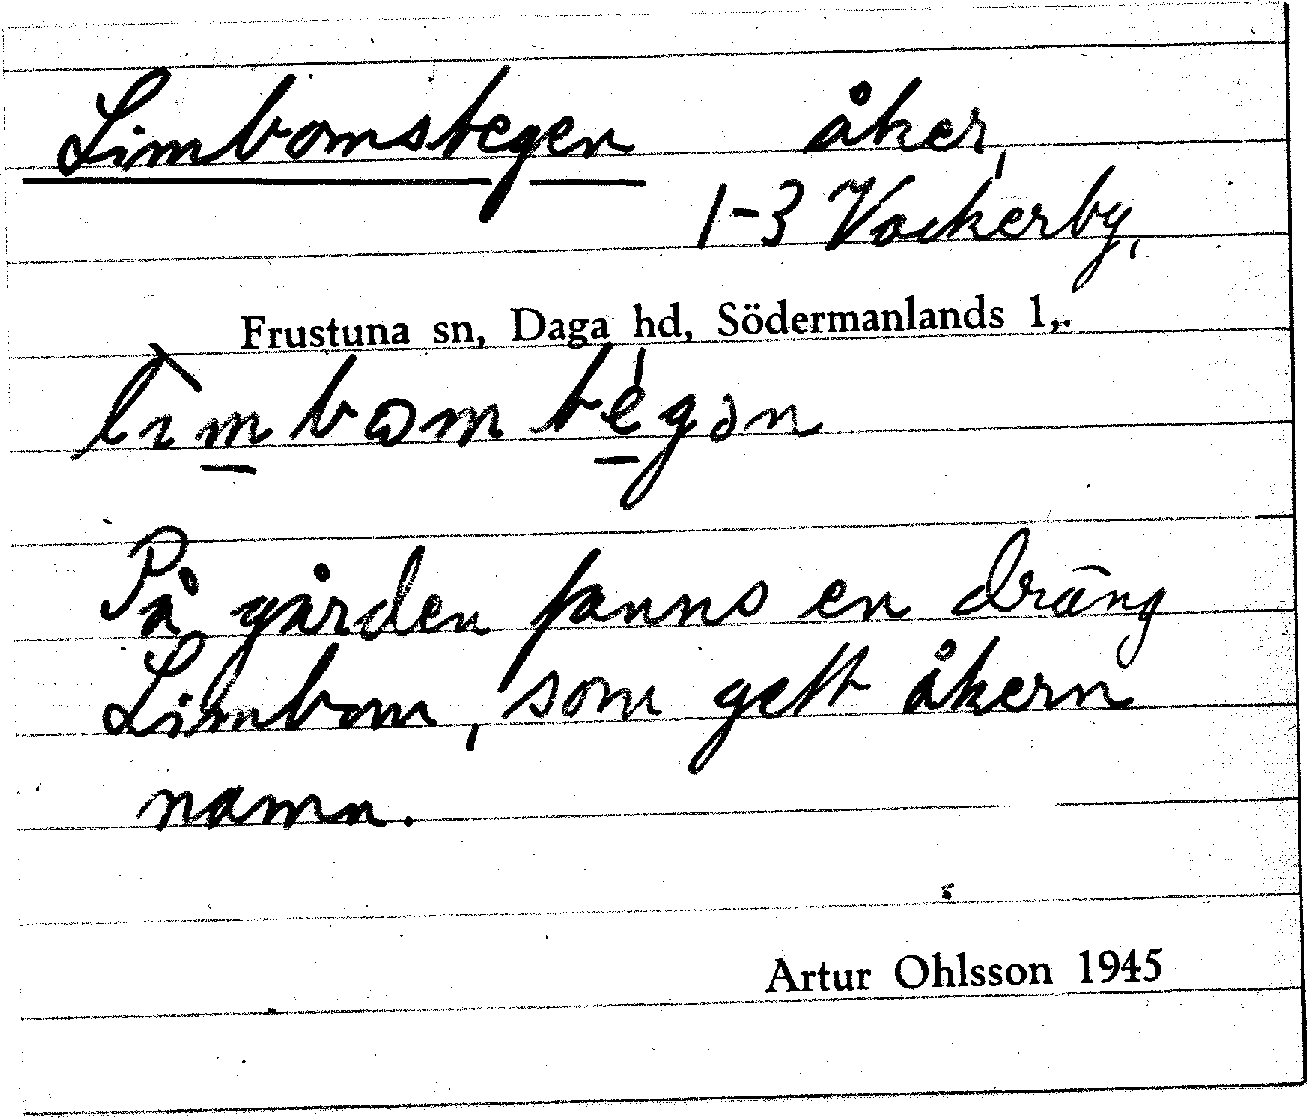 Limbomstegen åker,
1-3 Vackerby,
Frustuna sn, Daga hd, Södermanlands l,.
På gården fanns en dräng
Limbom, som gett åkern
namn.
Artur Ohlsson 1945